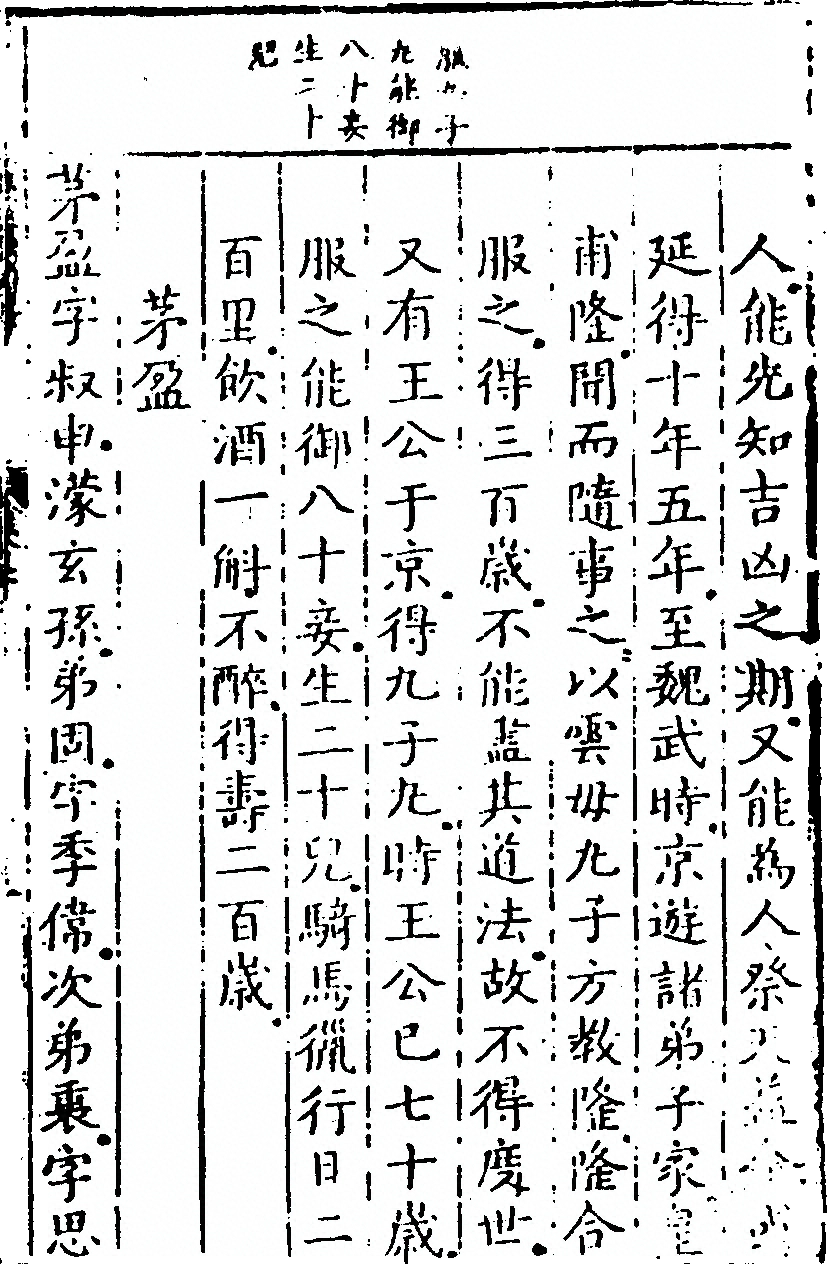 服九子
九能御
八十妾
生二十
兒
人能先知吉凶之期又能為人祭天益命或
延得十年五年至魏武時京遊諸弟子家皇
甫隆聞而隨事之以雲母九子方教隆隆合
服之得三百歲不能盡其道法故不得度世
又有王公于京得九子九時王公已七十歲
服之能御八十妾生二十兒騎馬獵行日二
百里飲酒一斛不醉得壽二百歲
茅盈
茅盈字叔申濛玄孫弟固字季偉次弟衷字思